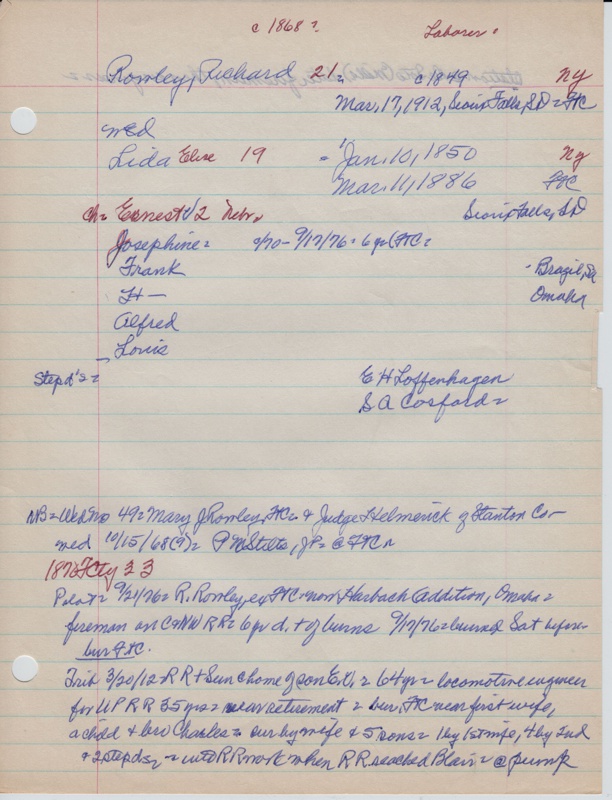 c 1868?
Laborer.
Rowley, Richard 21. c 1849 NY
Mar. 17, 1912, Sioux Falls, SD = FtC
wed
Lida Elise 19 = Jan. 10, 1850 NY
Mar. 11, 1886 FtC
Ch= Ernest 1/2 Nebr. Sioux Falls, SD
Josephine= 2/70 - 9/17/76 = 6 yr FtC=
Frank - Brazil,
H - Omaha
Alfred
Louis
Step d's= E H Loffenhagen
S A Cosford=
NB = Wed No 49= Mary J Rowley, FtC= & Judge Helmerick of Stanton Co-
wed 10/15/68(9)= P M Stilts, JP= @ FtC
1876 FCty 33
Pilot= 9/21/76= R. Rowley, ex FtC now Harbach Addition, Omaha=
foreman on C&NW RR= 6 yr d. + of burns 9/17/76= buried Sat before
bur FtC.
Trib 3/20/12= R R + Sun home of son = 64 yr= locomotive engineer
for UP RR 35 yrs= near retirement = bur. FtC near first wife,
a child & bro Charles= sur by wife & 5 sons= 1 by 1st wife, 4 by 2nd
& 2 step ds= into RR work when RR reached Blair= @ pump